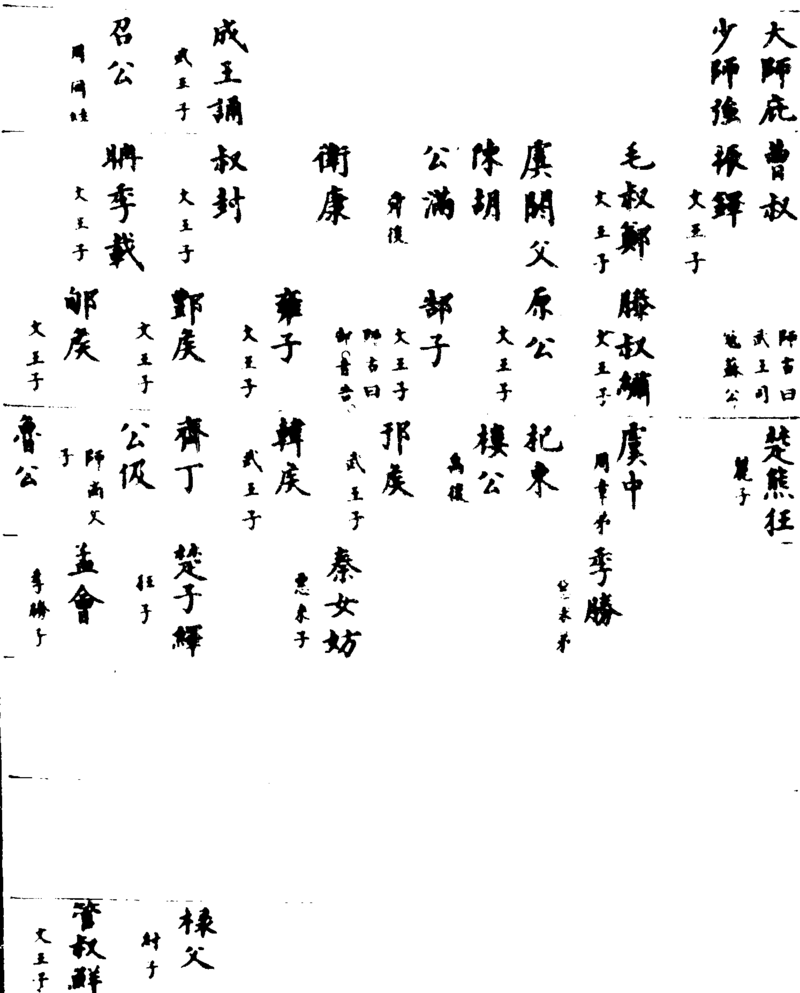 大師疵
少師強
成王誦
武王子
召公
周同姓
曹叔
振鐸
文王子
毛叔鄭
文王子
虞閼父
陳胡
公滿
舜後
衛康
叔封
文王子
聃季載
文王子
師古曰
武王司
寇蘇公
滕叔繡
文王子
原公
文王子
郜子
文王子
師古曰
郜音告
雍子
文王子
酆侯
文王子
郇侯
文王子
楚熊狂
麗子
虞中
周章弟
杞東
樓公
禹後
邘侯
武王子
韓侯
武王子
齊丁
公伋
師尚父
子
魯公
季勝
惡來弟
秦女妨
惡來子
楚子繹
狂子
孟會
季勝子
祿父
紂子
管叔鮮
文王子